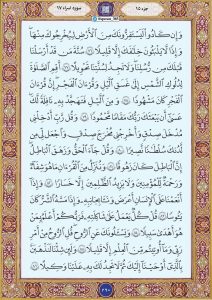 سوره اسراء ١٧
جزء ١٥
وَإِن كَادُوا۟ لَيَسْتَفِزُّونَكَ مِنَ ٱلْأَرْضِ لِيُخْرِجُوكَ مِنْهَا
وَإِذًا لَّا يَلْبَثُونَ خِلَٰفَكَ إِلَّا قَلِيلًا ٧٦ سُنَّةَ مَن قَدْ أَرْسَلْنَا
قَبْلَكَ مِن رُّسُلِنَا وَلَا تَجِدُ لِسُنَّتِنَا تَحْوِيلًا ٧٧ أَقِمِ ٱلصَّلَوٰةَ
لِدُلُوكِ ٱلشَّمْسِ إِلَىٰ غَسَقِ ٱلَّيْلِ وَقُرْءَانَ ٱلْفَجْرِ إِنَّ قُرْءَانَ
ٱلْفَجْرِ كَانَ مَشْهُودًا ٧٨ وَمِنَ ٱلَّيْلِ فَتَهَجَّدْ بِهِۦ نَافِلَةً لَّكَ
عَسَىٰٓ أَن يَبْعَثَكَ رَبُّكَ مَقَامًا مَّحْمُودًا ٧٩ وَقُل رَّبِّ أَدْخِلْنِى
مُدْخَلَ صِدْقٍ وَأَخْرِجْنِى مُخْرَجَ صِدْقٍ وَٱجْعَل لِّى مِن
لَّدُنكَ سُلْطَٰنًا نَّصِيرًا ٨٠ وَقُلْ جَآءَ ٱلْحَقُّ وَزَهَقَ ٱلْبَٰطِلُ
إِنَّ ٱلْبَٰطِلَ كَانَ زَهُوقًا ٨١ وَنُنَزِّلُ مِنَ ٱلْقُرْءَانِ مَا هُوَ شِفَآءٌ
وَرَحْمَةٌ لِّلْمُؤْمِنِينَ وَلَا يَزِيدُ ٱلظَّٰلِمِينَ إِلَّا خَسَارًا ٨٢ وَإِذَآ
أَنْعَمْنَا عَلَى ٱلْإِنسَٰنِ أَعْرَضَ وَنَـَٔا بِجَانِبِهِۦ وَإِذَا مَسَّهُ ٱلشَّرُّ كَانَ
يَـُٔوسًا ٨٣ قُلْ كُلٌّ يَعْمَلُ عَلَىٰ شَاكِلَتِهِۦ فَرَبُّكُمْ أَعْلَمُ بِمَنْ
هُوَ أَهْدَىٰ سَبِيلًا ٨٤ وَيَسْـَٔلُونَكَ عَنِ ٱلرُّوحِ قُلِ ٱلرُّوحُ مِنْ أَمْرِ
رَبِّى وَمَآ أُوتِيتُم مِّنَ ٱلْعِلْمِ إِلَّا قَلِيلًا ٨٥ وَلَئِن شِئْنَا لَنَذْهَبَنَّ
بِٱلَّذِىٓ أَوْحَيْنَآ إِلَيْكَ ثُمَّ لَا تَجِدُ لَكَ بِهِۦ عَلَيْنَا وَكِيلًا ٨٦
٢٩٠